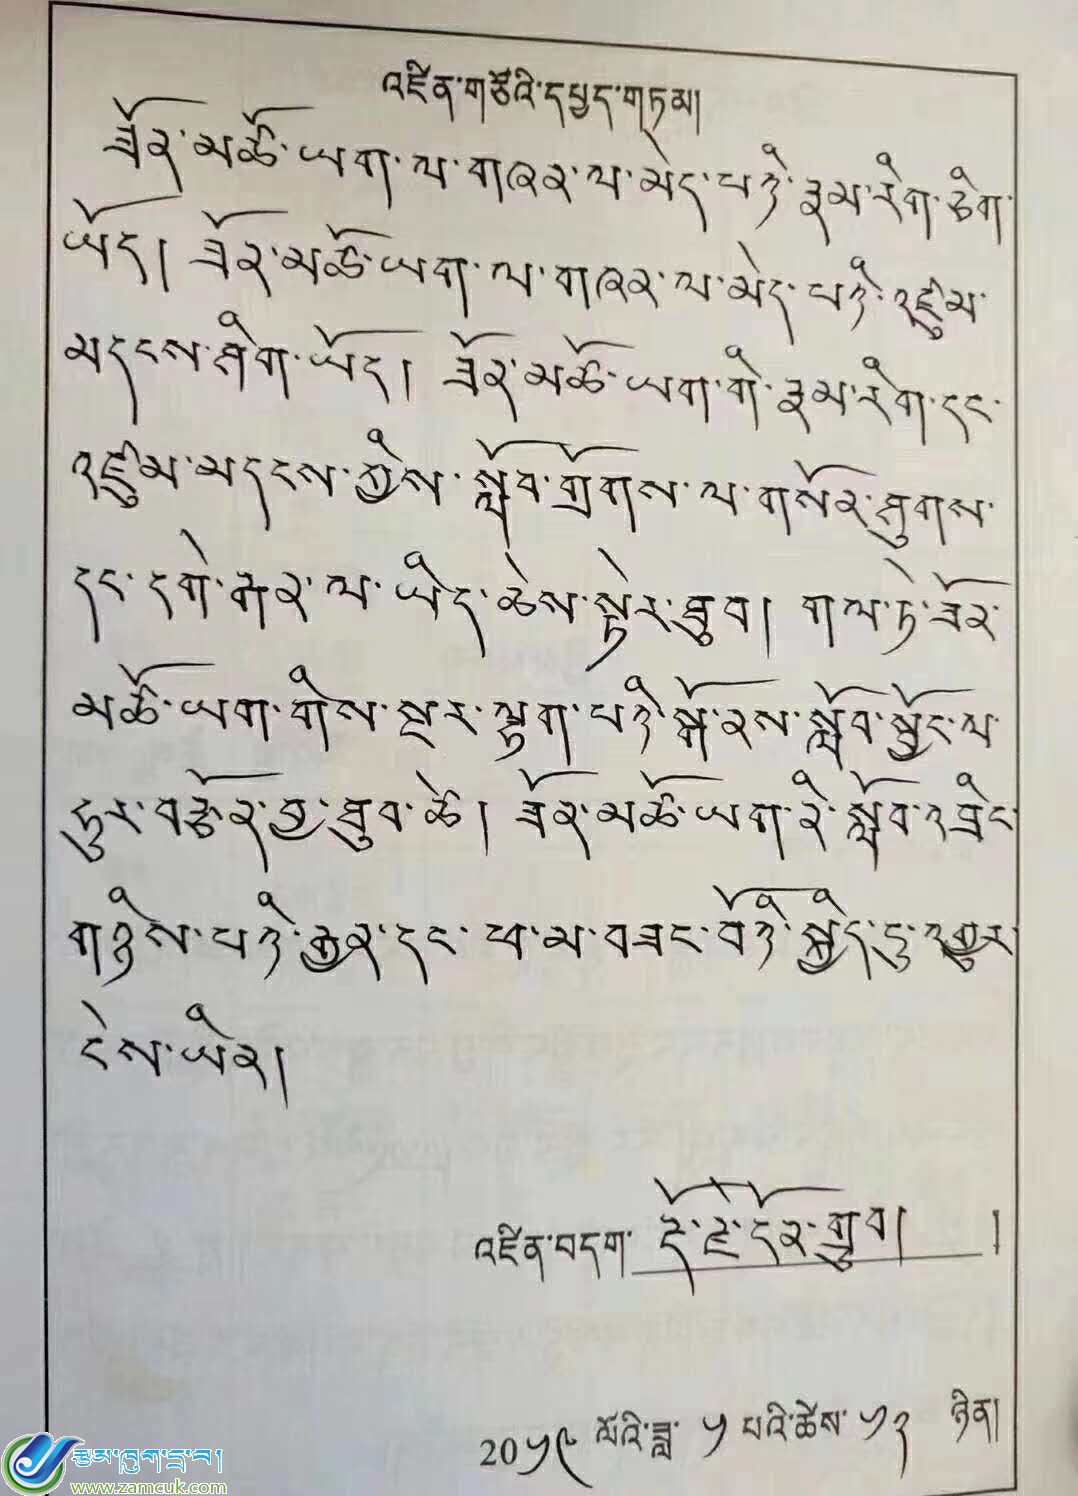 འཛིན་གཙོའི་དཔྱད་གཏམ།
ཟློར་མཚོ་ཡག་ལ་གཞར་ལ་མེད་པའི་རྣམ་རིག་ཅིག་
ཡོད། ཟློར་མཚོ་ཡག་ལ་གཞར་ལ་མེད་པའི་འཛུམ་
མདངས་ཤིག་ཡོད། ཟློར་མཚོ་ཡག་གི་རྣམ་རིག་དང་
འཛུམ་མདངས་ཀྱིས་སློབ་གྲོགས་ལ་གསོར་ཤུགས་
དང་དགེ་རྒན་ལ་ཡིད་ཆེས་སྟེར་ཐུབ། གལ་ཏེ་ཟློར་
མཚོ་ཡག་གིས་སྔར་ལྷག་པའི་སྒོ་ནས་སློབ་སྦྱོང་ལ་
དུར་བརྩོན་བྱ་ཐུབ་ཚེ། ཟློར་མཚོ་ཡག་ནི་སློབ་འབྲིང་
གཉིས་པའི་རྒྱན་དང་ཕ་མ་བཟང་པོའི་སྐྱིད་དུ་འགྱུར་
ངེས་ཡིན།
འཛིན་བདག་ རྡོ་རྗེ་དོན་གྲུབ། །
20༡༩ ལོའི་ཟླ་ ༡ པའི་ཚེས་ ༡༢ ཉིན།
རྩམ་ཁུག་དྲ་བ།
www.zamcuk.com